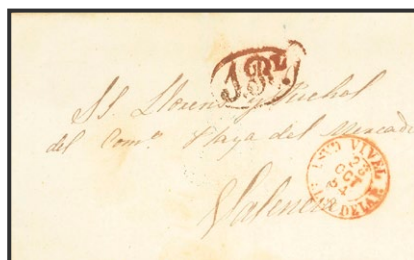 1 Rl.
SS. Llorens y Puchol
del Comº. Plaza del Mercado
Valencia
VIVEL
23
OCT
54